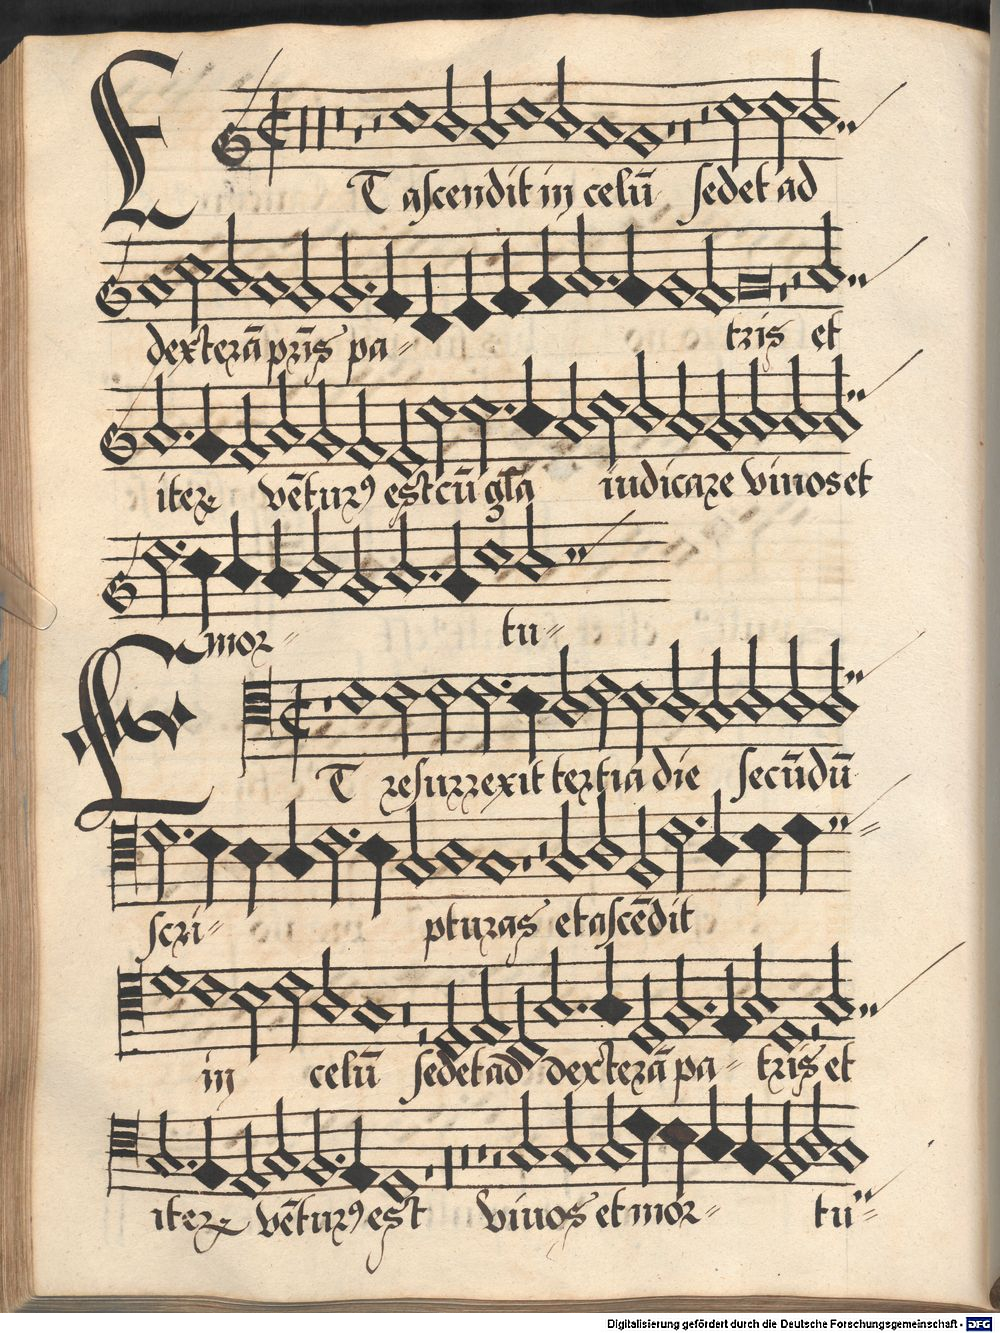 ET ascendit in celū sedet ad
dexterā prīs pa= tris et
iter vētur⁹ est cū glā iudicare viuos et
mor= tu=
ET resurrexit tertia die secūdū
scri= pturas et ascēdit
in celū sedet ad dexterā pa= tris et
iter vētur⁹ est viuos et mor= tu=
Digitalisierung gefördert durch die Deutsche Forschungsgemeinschaft - DFG